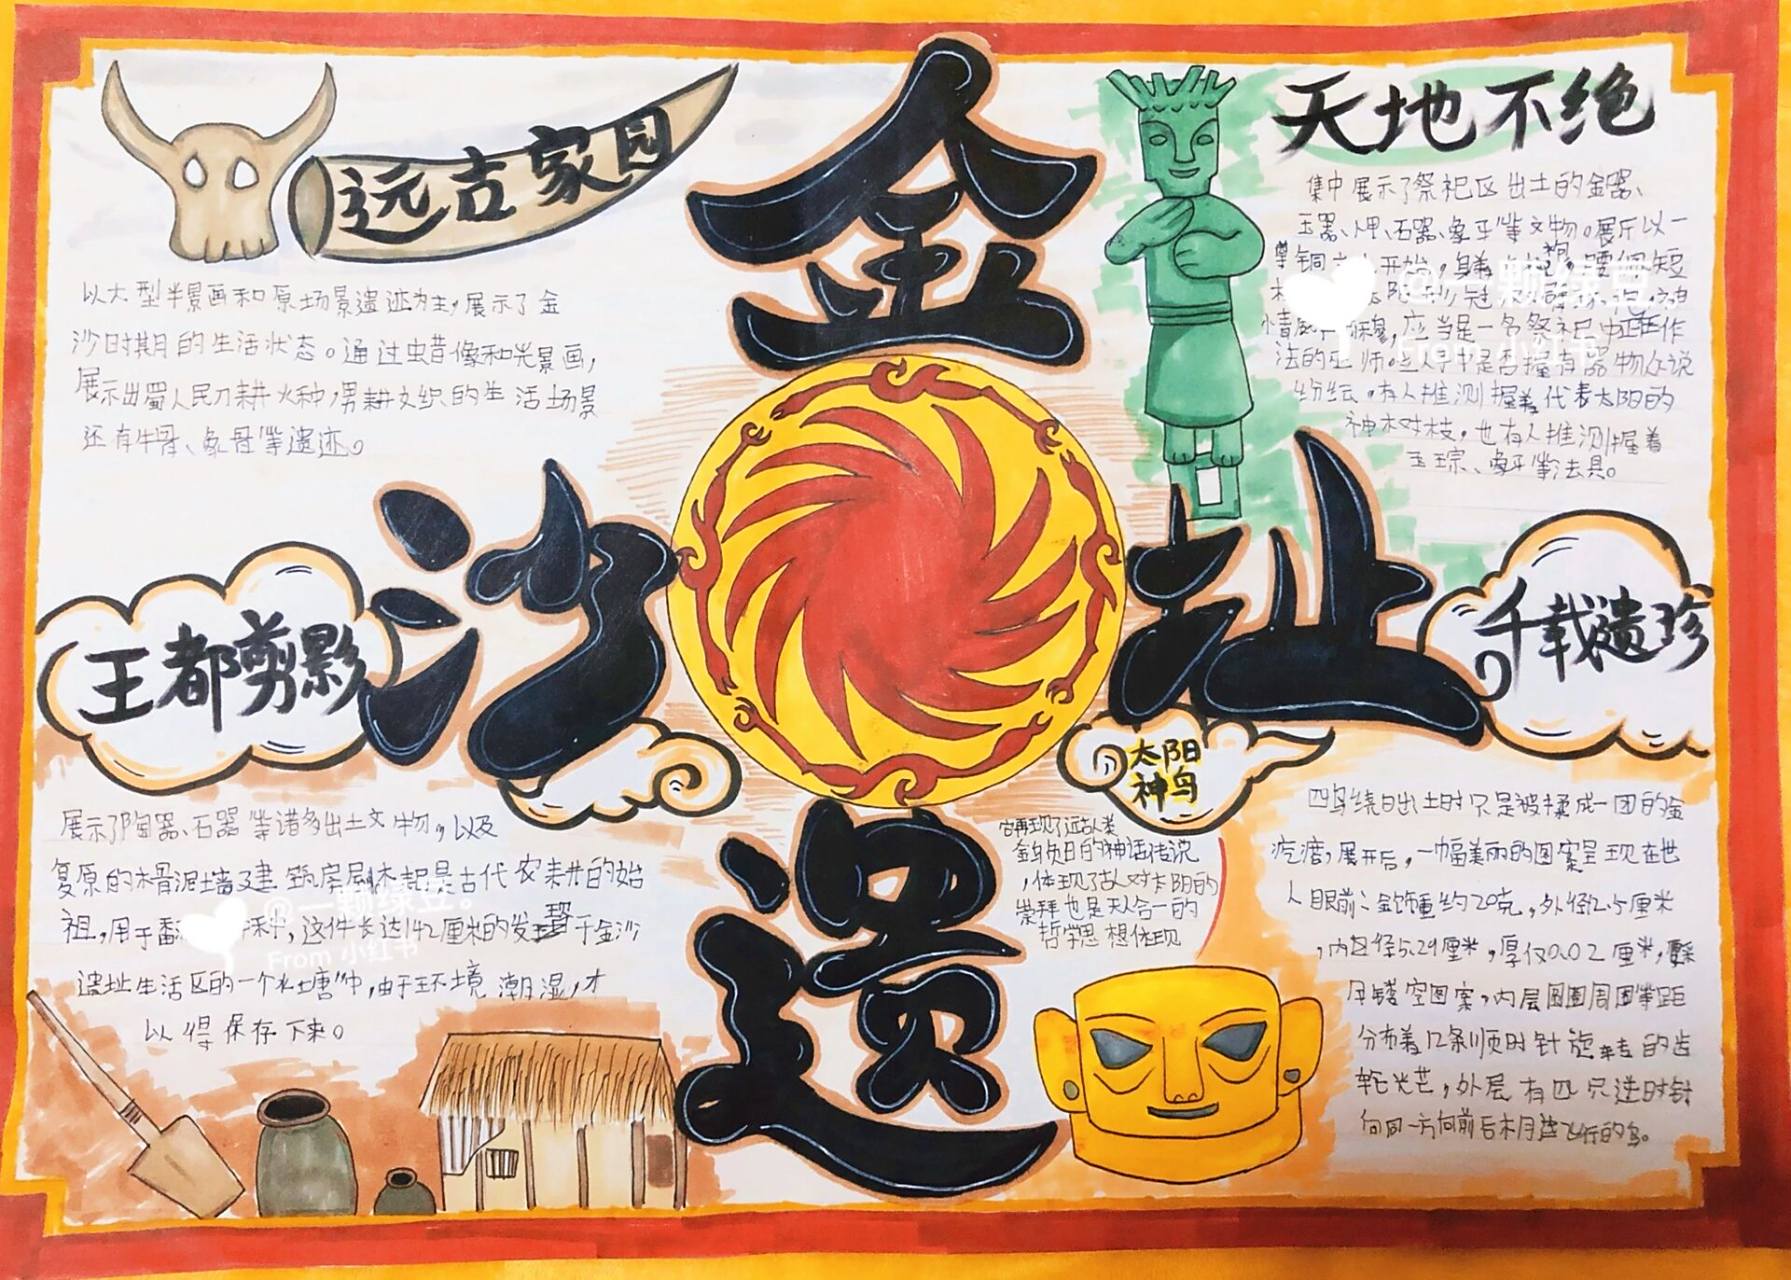 金
沙
遗
址
远古家园
以大型半景画和原场景遗迹为主，展示了金
沙时期的生活状态。通过蜡像和光景画，
展示出蜀人民刀耕火种，男耕女织的生活场景
还有牛骨、象骨等遗迹。
天地不绝
集中展示了祭祀区出土的金器、
玉器、卜甲、石器、象牙等文物。展厅以一
尊铜立人开始，身着袍，腰佩短
情威，应当是一名祭祀中正在作
法的巫师。立人手中是否握有器物众说
纷纭。有人推测握着代表太阳的
神木树枝，也有人推测握着
玉琮、象牙等法具。
王都剪影
展示了陶器、石器等诸多出土文物，以及
复原的木骨泥墙建筑房屋。木耜是古代农耕的始
祖，用于翻种，这件长达142厘米的发现于金沙
遗址生活区的一个水塘中，由于环境潮湿，才
以得保存下来。
太阳
神鸟
它再现了远古人类
金乌负日的神话传说
，体现了古人对太阳的
崇拜也是天人合一的
哲学思想体现
千载遗珍
四鸟绕日出土时只是被揉成一团的金
疙瘩，展开后，一幅美丽的图案呈现在世
人眼前：金饰重约20克，外径12.5厘米
，内径5.29厘米，厚仅0.02厘米，
镂空图案，内层圆圈周围等距
分布着12条顺时针旋转的齿
轮光芒，外层有四只逆时针
向同一方向前后相连飞行的鸟。
@一颗绿豆
From 小红书
@一颗绿豆。
From 小红书